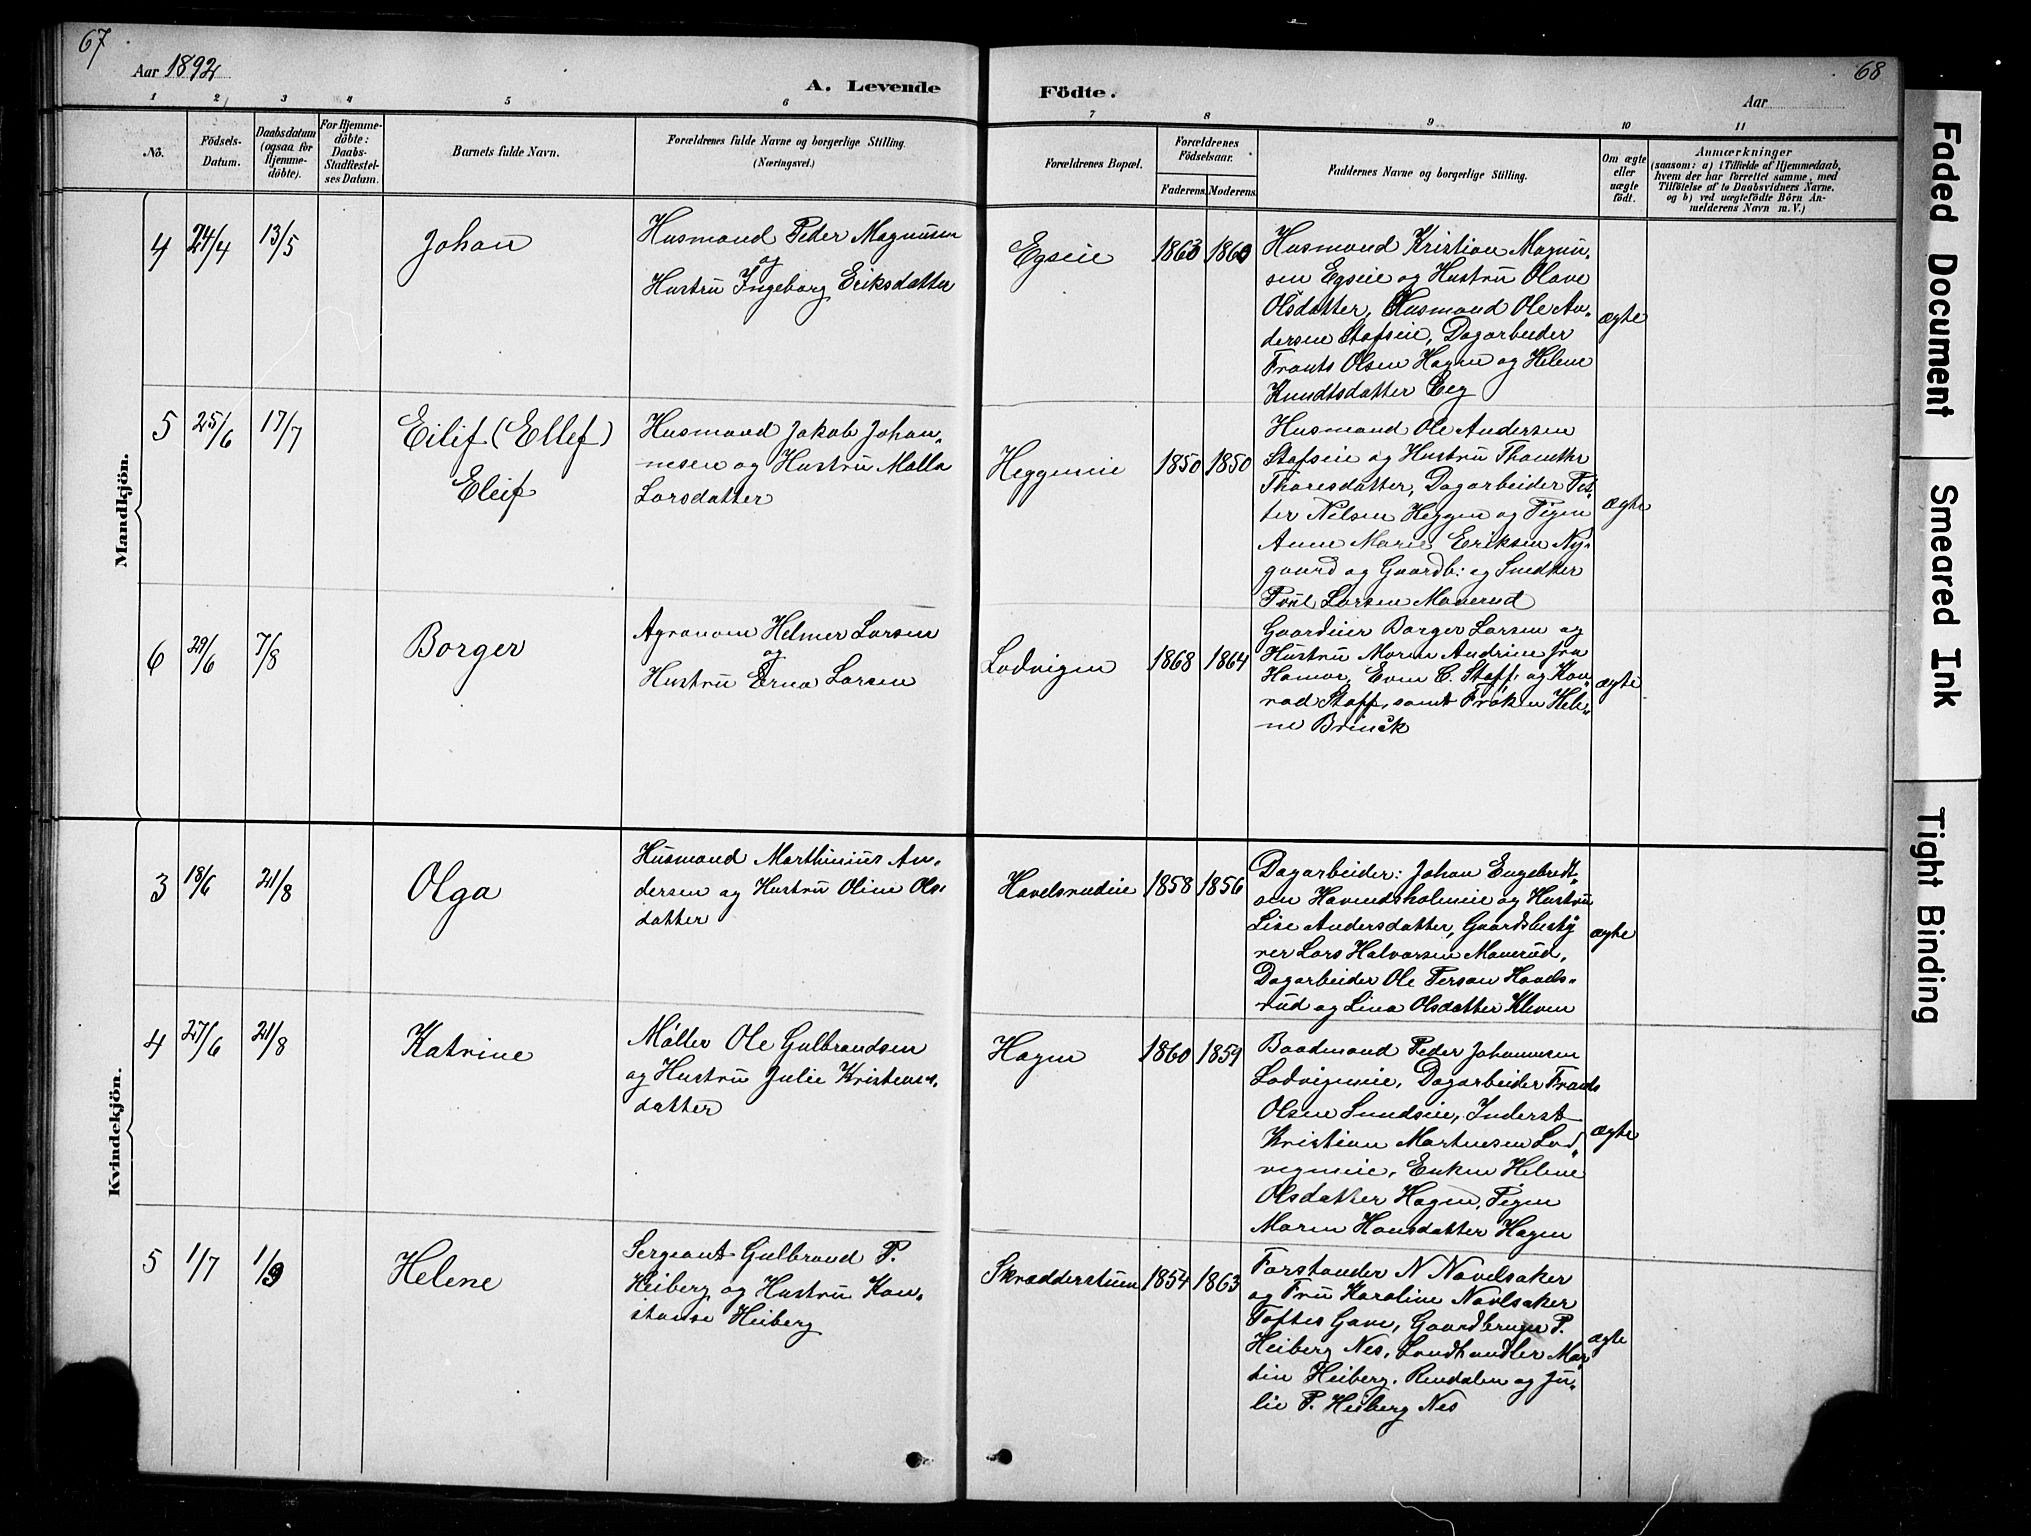 67
68
Aar 1892
A. Levende
Födte.
Aar
1 2 3 4 5 6
7 8 9 10 11
No.
Födsels-
Datum.
Daabsdatum
(ogsaa for
Hjemme-
döbte).
For Hjemme-
döbte:
Daabs-
Stadfæstel-
ses Datum.
Barnets fulde Navn.
Forældrenes fulde Navne og borgerlige Stilling.
(Næringsvei.)
Forældrenes Bopæl.
Forældrenes
Födselsaar.
Faderens. Moderens.
Faddernes Navne og borgerlige Stilling.
Om ægte
eller
uægte
födt.
Anmærkninger
(saasom: a) i Tilfælde af Hjemmedaab,
hvem der har forrettet samme, med
Tilföielse af to Daabsvidners Navne.
og b) ved uægtefödte Börn An-
melderens Navn m. V.)
Mandkjön.
4 24/4 13/5
Johan
Husmand Peder Magnusen
og
Hustru Ingeborg Eriksdatter
Egseie
1863 1860
Husmand Kristian Magnu-
sen Egseie og Hustru Olave
Olsdatter, Husmand Ole An-
dersen Stafseie, Dagarbeider
Frants Olsen Hagen og Helene
Knudtsdatter Eeg
ægte
5 25/6 17/7
Eilif (Ellef)
Eleif
Husmand Jakob Johan-
nesen og Hustru Malla
Larsdatter
Heggeneie
1850 1850
Husmand Ole Andersen
Stafseie og Hustru
Tharesdatter, Dagarbeider Pet-
ter Nelsen Heggen og Pigen
Anne Marie Eriksen Ny-
gaard og Gaardb: og Snedker
Paul Larsen Manerud
ægte
6 29/6 7/8
Borger
Agronom Helmer Larsen
og
Hustru Erna Larsen
Lodvigen
1868 1864
Gaardeier Borger Larsen og
Hustru Maren Andrine fra
Hamar, Even C. Staff, og Kon-
rad Staff, samt Frøken Hele-
ne Brinck
ægte
Kvindekjön.
3 18/6 21/8
Olga
Husmand Marthinius An-
dersen og Hustru Oline Ols-
datter
Havelsrudeie
1858 1856
Dagarbeider: Johan Engebredt-
sen Havendsholmeie og Hustru
Lise Andersdatter, Gaardsbesty
rer Lars Halvorsen Manerud,
Dagarbeider Ole Person Havels-
rud og Lina Olsdatter Kleven
ægte
4 27/6 21/8
Katrine
Møller Ole Gulbrandsen
og Hustru Julie Kristens-
datter
Hagen
1860 1859
Baadsmand Peder Johannesen
Lodvigeneie, Dagarbeider Frants
Olsen Sundseie, Inderst
Kristian Martinsen Lod-
vigeneie, Enken Helene
Olsdatter Hagen, Pigen
Maren Hansdatter Hagen
ægte
5 1/7 1/9
Helene
Sergeant Gulbrand P.
Heiberg og Hustru Kon-
stanse Heiberg
Skrædderstuen
1854 1863
Forstander N Navelsaker
og Fru Karoline Navelsaker
Toftes Gave, Gaardbruger P.
Heiberg Nes, Landhandler Mar-
tin Heiberg, Rendalen og Ju-
lie P. Heiberg Nes
ægte
Faded Document
Smeared Ink
Tight Binding